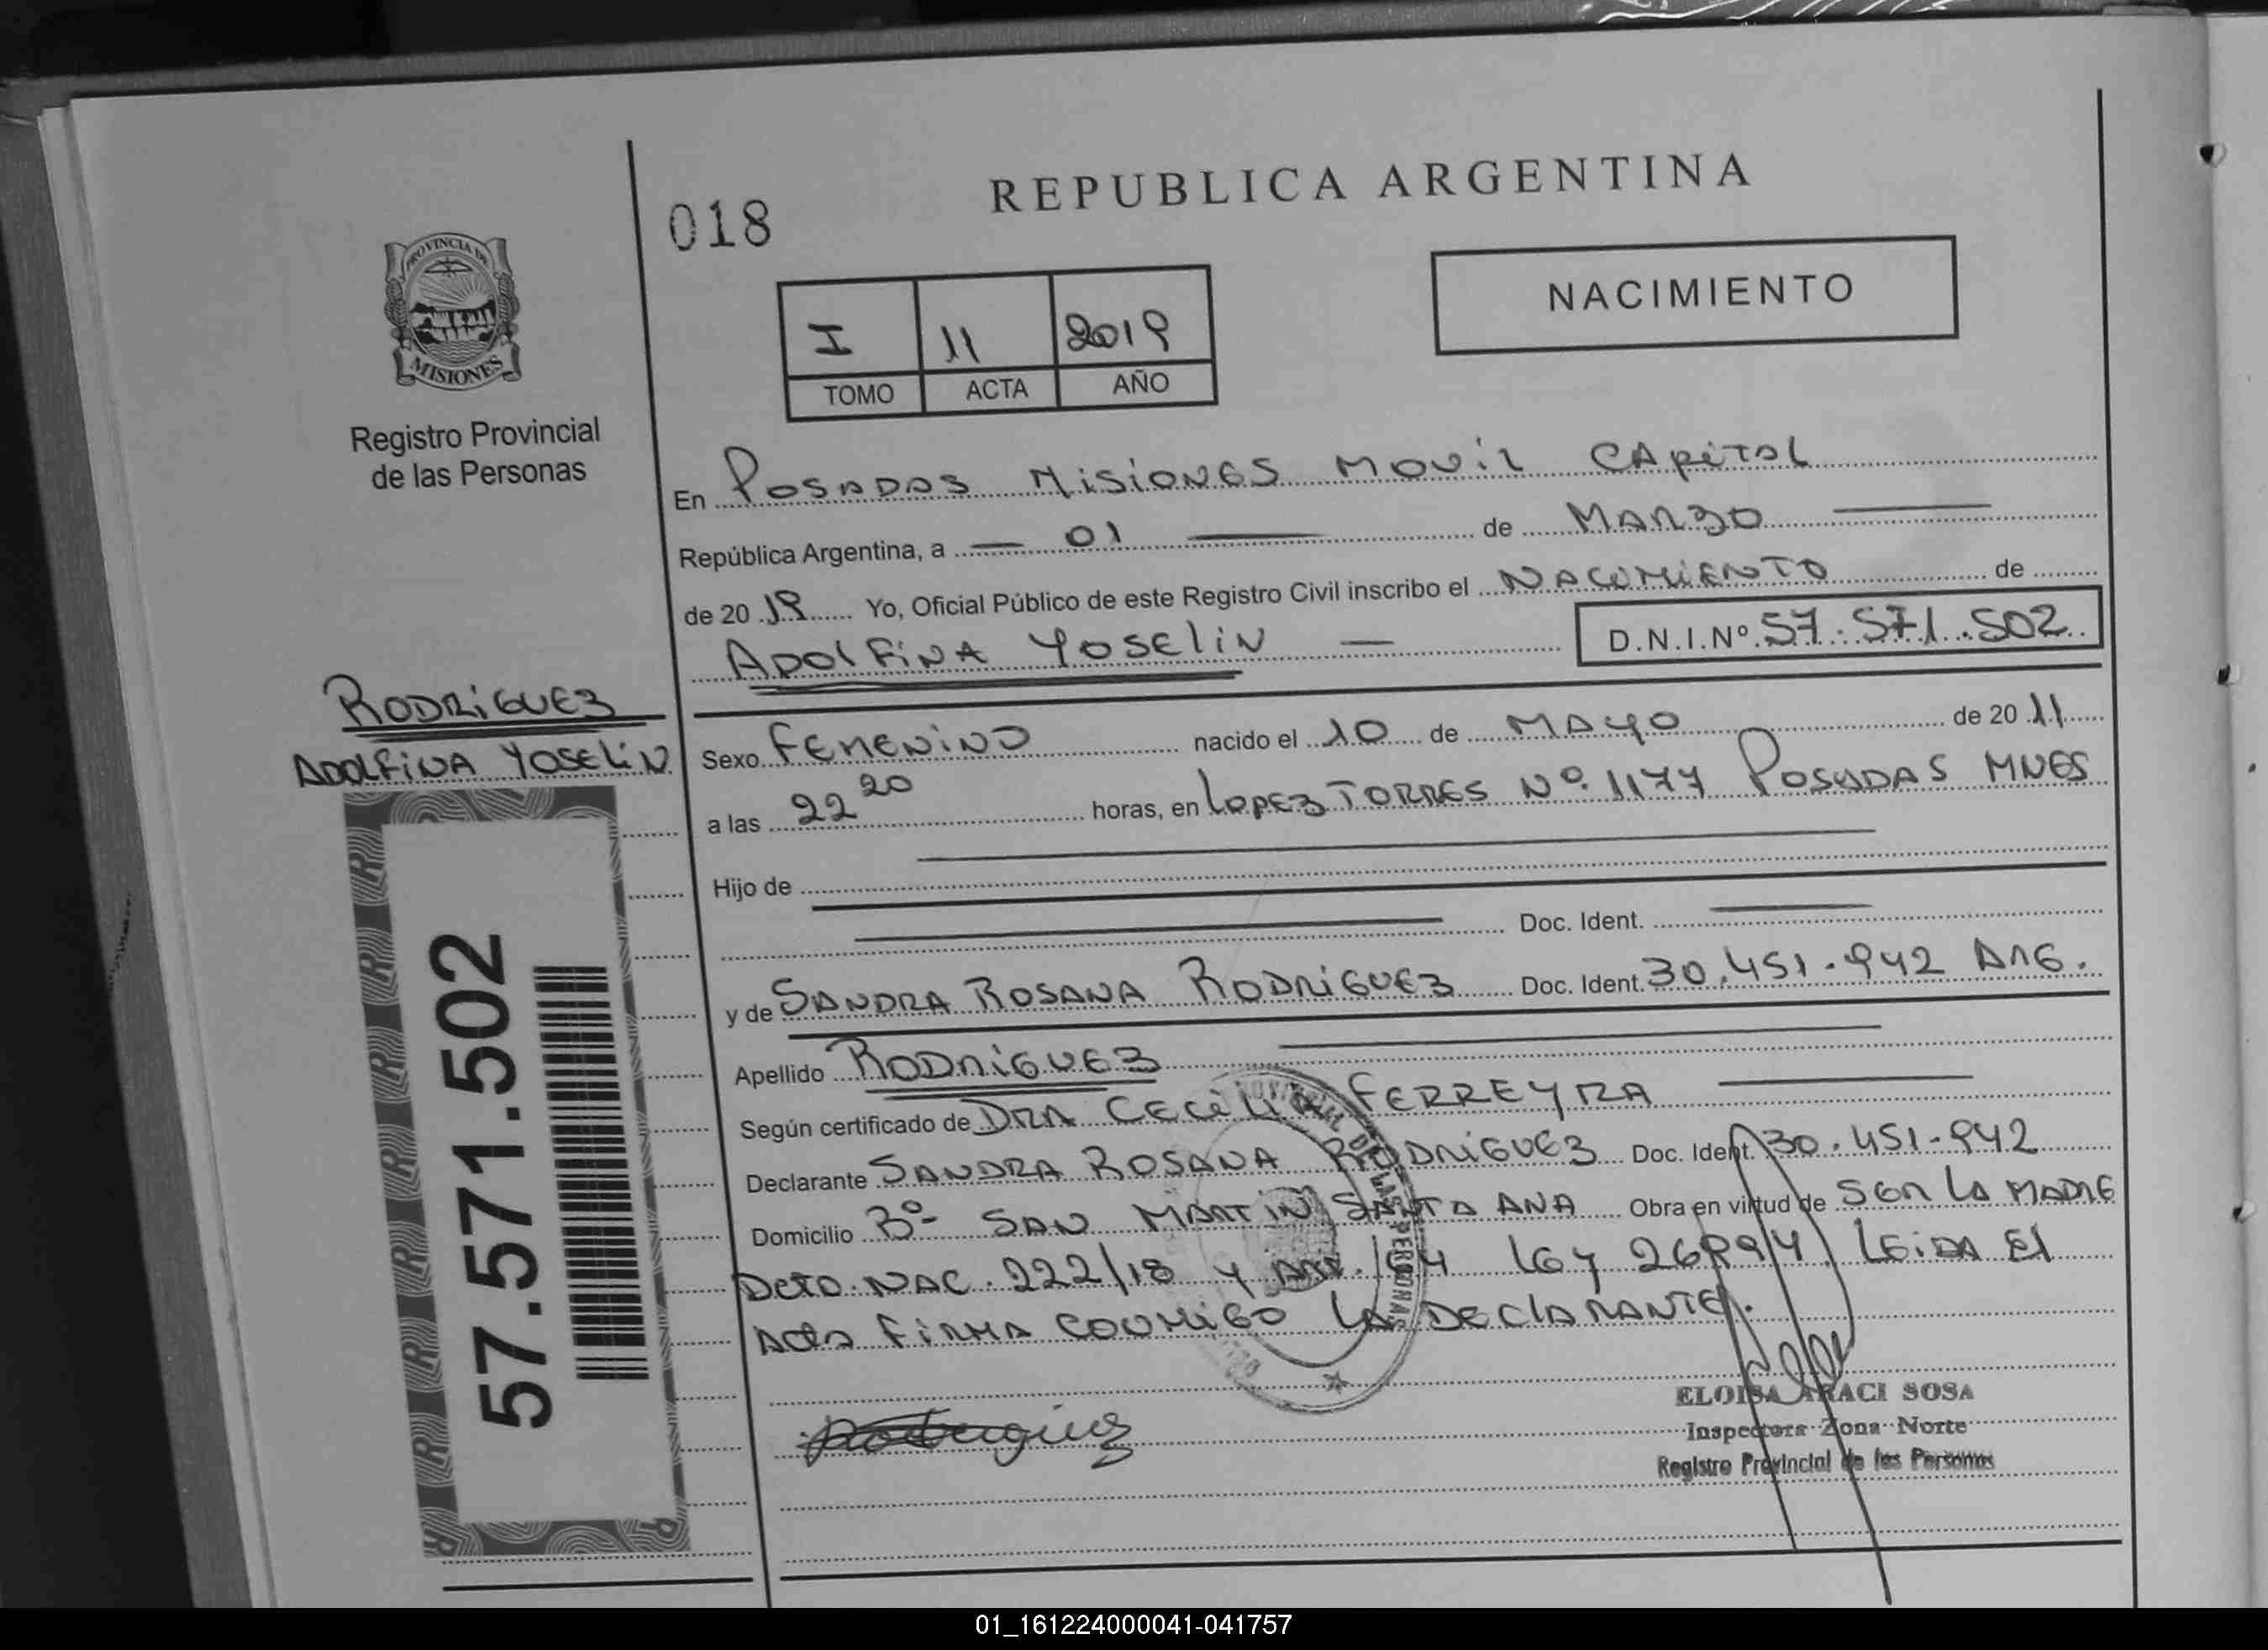 REPUBLICA ARGENTINA
018
NACIMIENTO
I 11 2019
TOMO ACTA AÑO
PROVINCIA DE
MISIONES
Registro Provincial
de las Personas
En POSADAS MISIONES MOVIL CAPITAL
República Argentina, a 01 de MARZO
de 2019 Yo, Oficial Público de este Registro Civil inscribo el NACIMIENTO de
ADOLFINA YOSELIN D.N.I.Nº 57.571.502
RODRIGUEZ
ADOLFINA YOSELIN
57.571.502
Sexo FEMENINO nacido el 10 de MAYO de 2011
a las 22 20 horas, en LOPEZ TORRES Nº 1177 POSADAS MNES
Hijo de
Doc. Ident.
y de SANDRA ROSANA RODRIGUEZ Doc. Ident. 30.451.942 ARG.
Apellido RODRIGUEZ
Según certificado de DRA CECILIA FERREYRA
Declarante SANDRA ROSANA RODRIGUEZ Doc. Ident. 30.451.942
Domicilio Bº SAN MARTIN SANTA ANA Obra en virtud de SER LA MADRE
DCTO. NAC. 222/18 Y ART. 64 LEY 26994 LEIDA EL
ACTA FIRMA CONMIGO LA DECLARANTE.
Rodriguez
ELOISA ARACI SOSA
Inspectora Zona Norte
Registro Provincial de las Personas
01_161224000041-041757